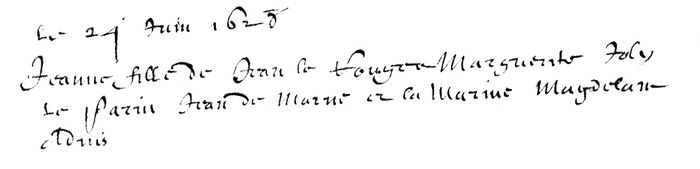 Le 24 Juin 162
Jeanne fille de Jean le Marguerite Joly
Le parin Jean de Marne et la Marine Magdelane